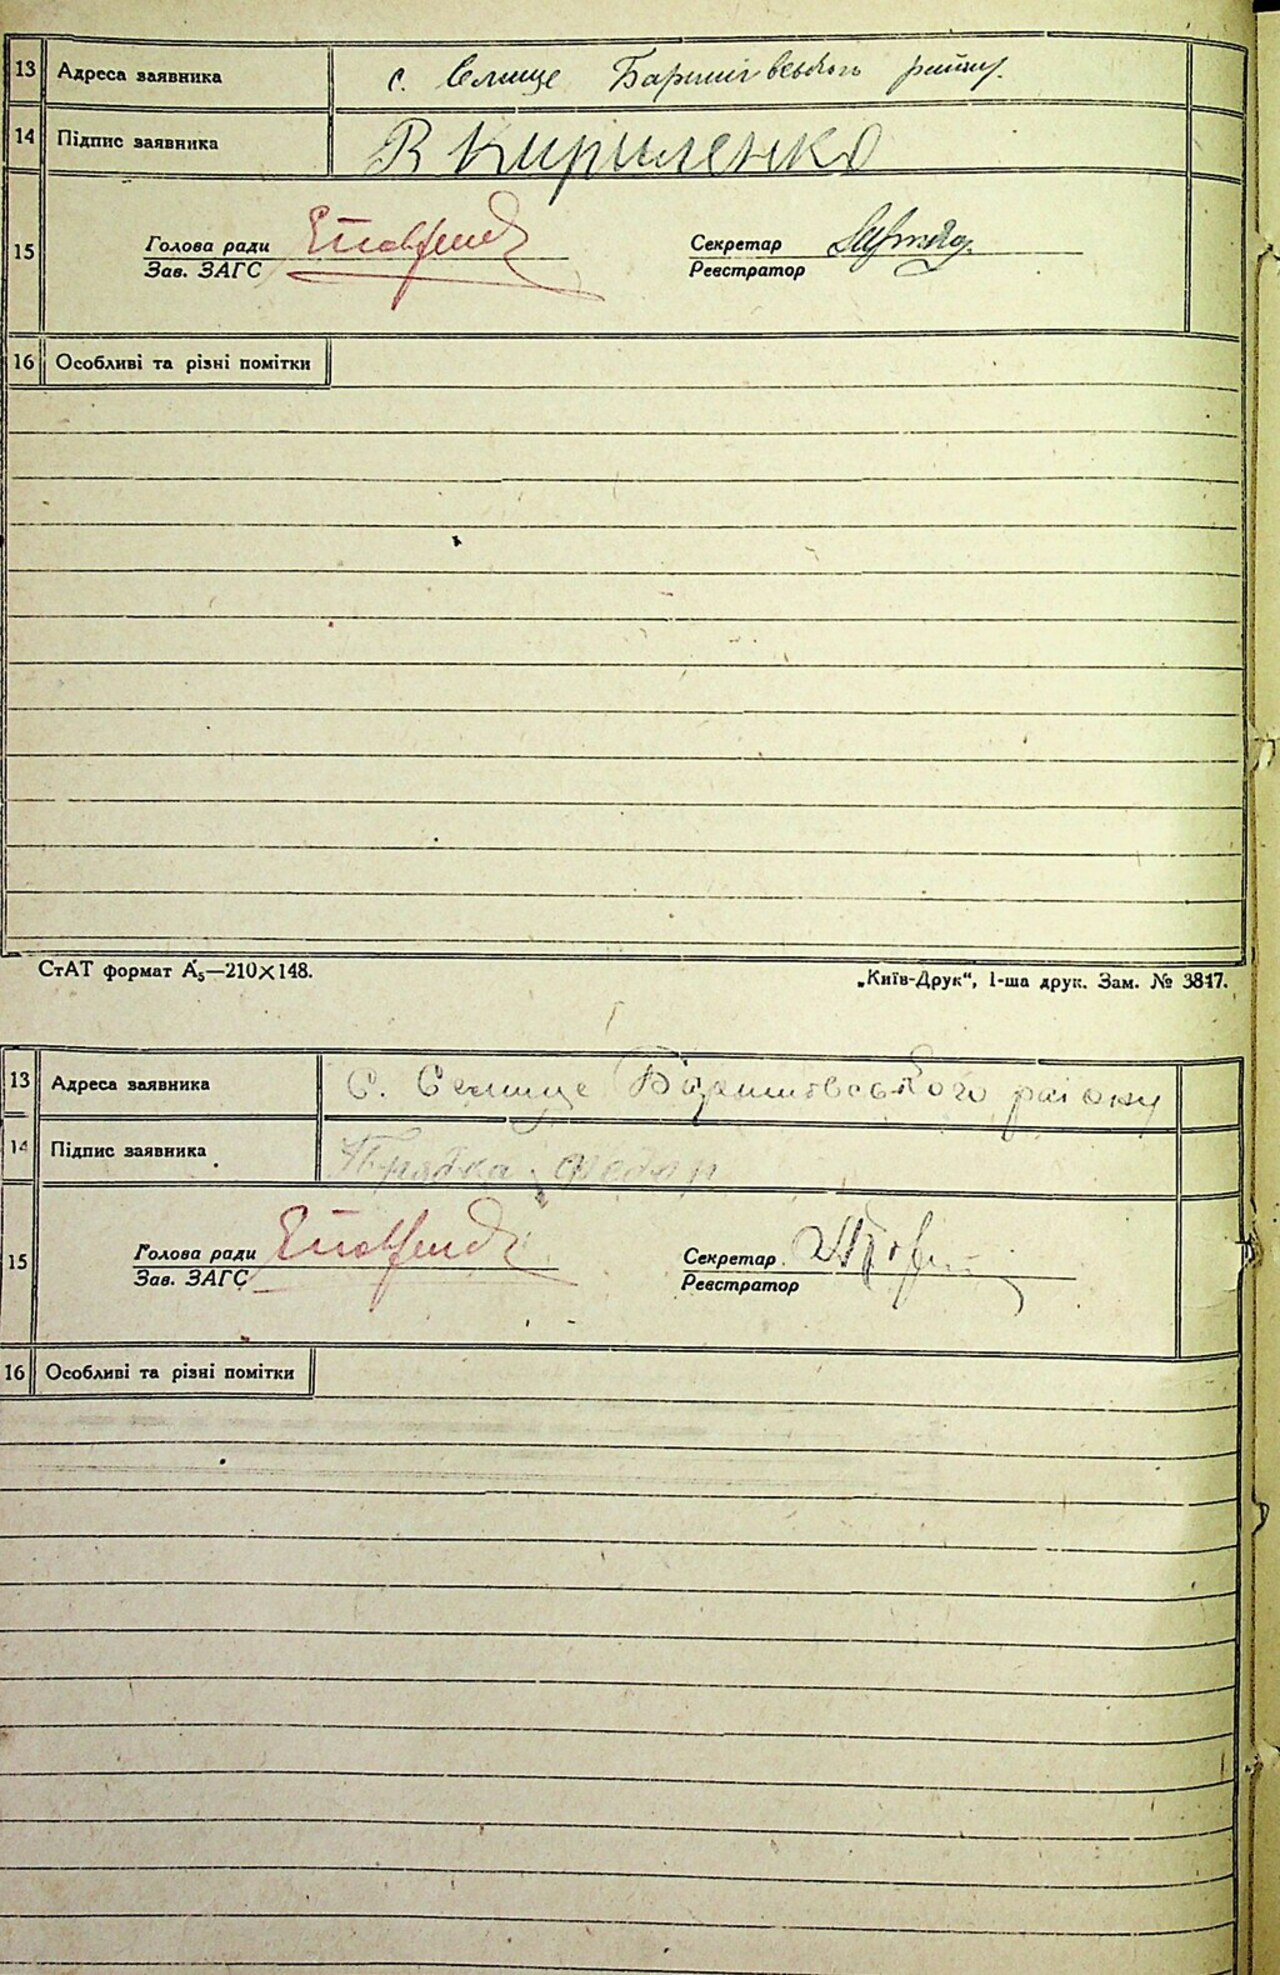 13 Адреса заявника с. Селище Баришівського району.
14 Підпис заявника В Кириленко
15 Голова ради Секретар
Зав. ЗАГС Реєстратор
16 Особливі та різні помітки
СтАТ формат А5—210×148. „Київ-Друк“, 1-ша друк. Зам. № 3817.
13 Адреса заявника С. Селище Баришівського району
14 Підпис заявника Федор
15 Голова ради Секретар
Зав. ЗАГС Реєстратор
16 Особливі та різні помітки